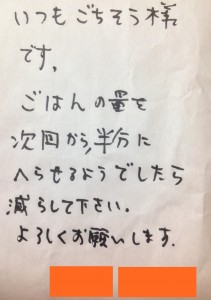 いつもごちそう様
です。
ごはんの量を
次回から、半分に
へらせるようでしたら
減らして下さい.
よろしくお願いします.